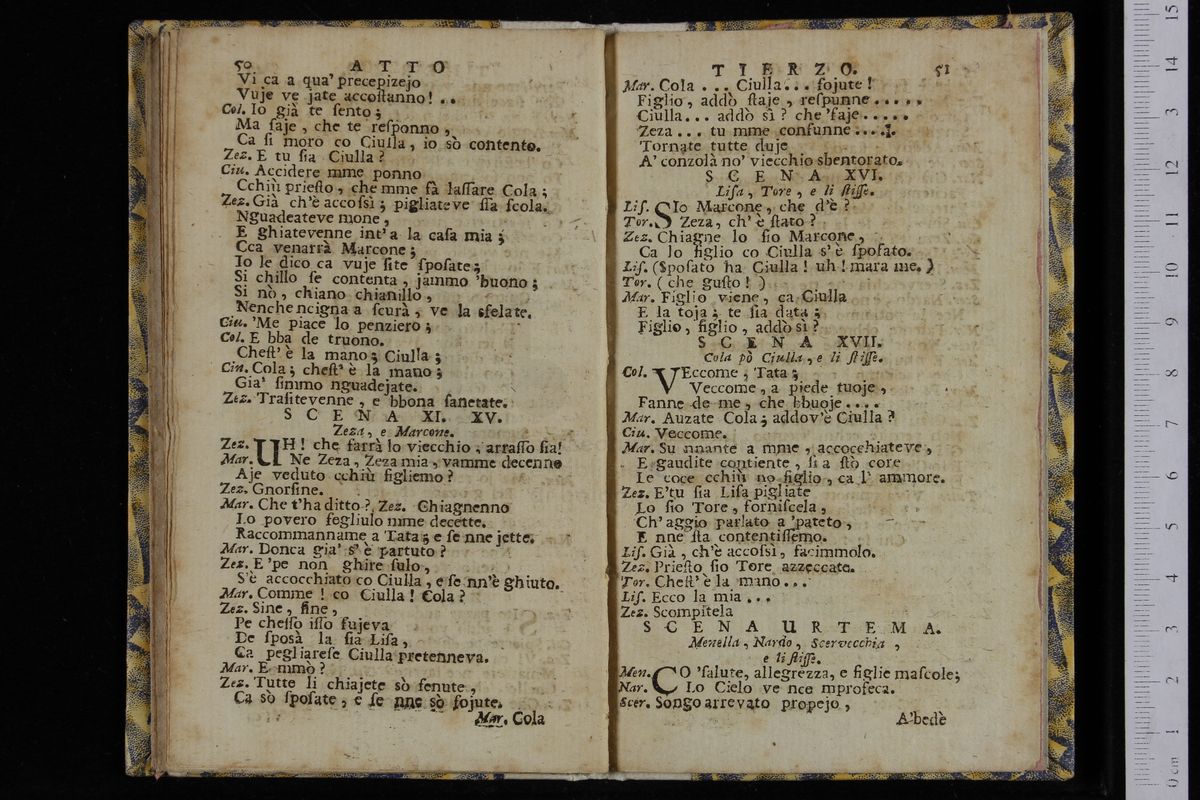 50 ATTO
Vi ca a qua' precepizejo
Vuje ve jate accostanno! ..
Col. Io già te sento;
Ma saje, che te responno,
Ca si moro co Ciulla, io sò contento.
Zez. E tu sia Ciulla?
Ciu. Accidere mme ponno
Cchiù priesto, che mme fà lassare Cola;
Zez. Già ch'è accossì; pigliateve sta scola.
Nguadeateve mone,
E ghiatevenne int'a la casa mia;
Cca venarrà Marcone;
Io le dico ca vuje site sposate;
Si chillo se contenta, jammo 'buono;
Si nò, chiano chianillo,
Nenche ncigna a scurà, ve la sfelate.
Ciu. 'Me piace lo penziero;
Col. E bba de truono.
Chest' è la mano; Ciulla;
Ciu. Cola; chest' è la mano;
Gia' simmo nguadejate.
Zez. Trasitevenne, e bbona sanetate.
SCENA XI. XV.
Zeza, e Marcone.
Zez. UH! che farrà lo viecchio, arrasso sia!
Mar. Ne Zeza, Zeza mia, vamme decenno
Aje veduto cchiù figliemo?
Zez. Gnorsine.
Mar. Che t'ha ditto? Zez. Chiagnenno
Lo povero fegliulo mme decette.
Raccommanname a Tata; e se nne jette.
Mar. Donca gia' s'è partuto?
Zez. E 'pe non ghire sulo,
S'è accocchiato co Ciulla, e se nn'è ghiuto.
Mar. Comme! co Ciulla! Cola?
Zez. Sine, sine,
Pe chesso isso fujeva
De sposà la sia Lisa,
Ca pegliarese Ciulla pretenneva.
Mar. E mmò?
Zez. Tutte li chiajete sò fenute,
Ca sò sposate, e se nne sò fojute.
Mar. Cola
TIERZO. 51
Mar. Cola ... Ciulla... fojute!
Figlio, addò staje, respunne.....
Ciulla... addò sì? che 'faje.....
Zeza... tu mme consunne....
Tornate tutte duje
A' conzolà no' viecchio sbentorato.
SCENA XVI.
Lisa, Tore, e li stisse.
Lis. SIo Marcone, che d'è?
Tor. Zeza, ch' è stato?
Zez. Chiagne lo sio Marcone,
Ca lo figlio co Ciulla s'è sposato.
Lis. (Sposato ha Ciulla! uh! mara me.)
Tor. (che gusto!)
Mar. Figlio viene, ca Ciulla
E la toja; te sia data;
Figlio, figlio, addò sì?
SCENA XVII.
Cola pò Ciulla, e li stisse.
Col. VEccome, Tata;
Veccome, a piede tuoje,
Fanne de me, che bbuoje....
Mar. Auzate Cola; addov'è Ciulla?
Ciu. Veccome.
Mar. Su nnante a mme, accocchiateve,
E gaudite contiente, si a stò core
Le coce cchiù no figlio, ca l' ammore.
Zez. E'tu sia Lisa pigliate
Lo sio Tore, forniscela,
Ch' aggio parlato a 'pateto,
E nne sta contentissemo.
Lis. Già, ch'è accossì, facimmolo.
Zez. Priesto sio Tore azzeccate.
Tor. Chest' è la mano...
Lis. Ecco la mia...
Zez. Scompitela
SCENA URTEMA.
Menella, Nardo, Scervecchia,
e li stisse.
Men. CO 'salute, allegrezza, e figlie mascole;
Nar. Lo Cielo ve nce mprofeca.
Scer. Songo arrevato propejo,
A'bedè